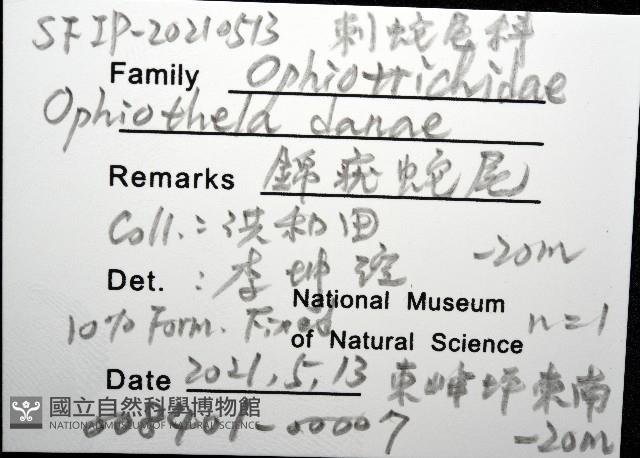 SFIP-20210513 刺蛇尾科
Family Ophiotrichidae
Ophiothela danae
Remarks 錦疣蛇尾
Coll.: 洪和田
Det. : 李坤瑄 -20m
National Museum
10% Form. Fixed n=1
of Natural Science
Date 2021,5,13 東嶼坪東南
國立自然科學博物館
NATIONAL MUSEUM OF NATURAL SCIENCE
008901-00007 -20m